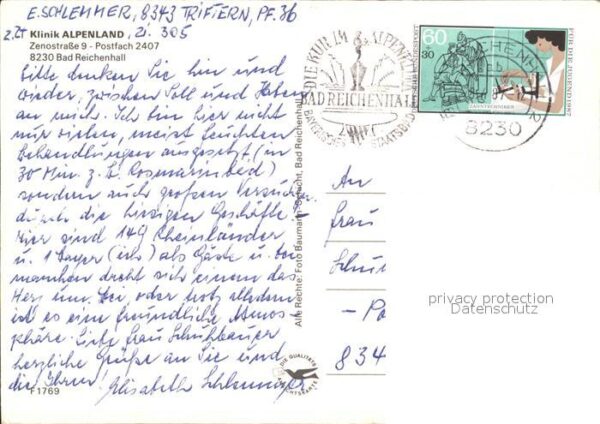 E. SCHLEMMER, 8343 TRIFTERN, PF. 36
z.Zt Klinik ALPENLAND, Zi. 305
Zenostraße 9 - Postfach 2407
8230 Bad Reichenhall
Bitte denken Sie hin und
wieder, zwischen Soll und Haben
an mich. Ich bin hier nicht
nur vielen, meist feuchten
Behandlungen ausgesetzt (in
30 Min. z. B. Rosmarinbad)
sondern auch großen Versuchen
durch die hiesigen Geschäfte.
Hier sind 149 Rheinländer
u. 1 Bayer (ich) als Gäste u. bei
manchen dreht sich einem das
Herz um. Bei, oder trotz alledem
ist es eine freundliche Atmos-
phäre. Liebe Frau Schußbauer
herzliche Grüße an Sie und
die Ihren! Elisabeth Schlemmer
F1769
Alle Rechte: Foto Baumann-Schicht, Bad Reichenhall
QUALITÄTS
DIE KUR IM ALPENKLIMA
BAD REICHENHALL
BAYERISCHES STAATSBAD
60
+30
DEUTSCHE BUNDESPOST
FÜR DIE JUGEND 1987
ZAHNTECHNIKER
8230
An
Frau
- Po
834
privacy protection
Datenschutz